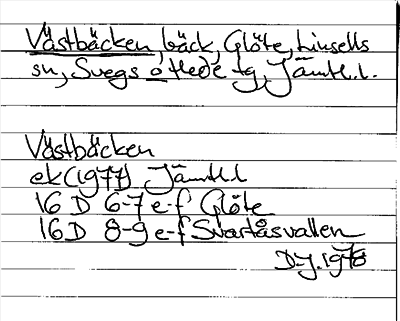 Västbäcken, bäck, Glöte, Linsells
sn, Svegs o Hede tg, Jämtl.l.
Västbäcken
ek (1977) Jämtl.l
16 D 6-7 e-f Glöte
16 D 8-9 e-f Svartåsvallen
D-J. 1978